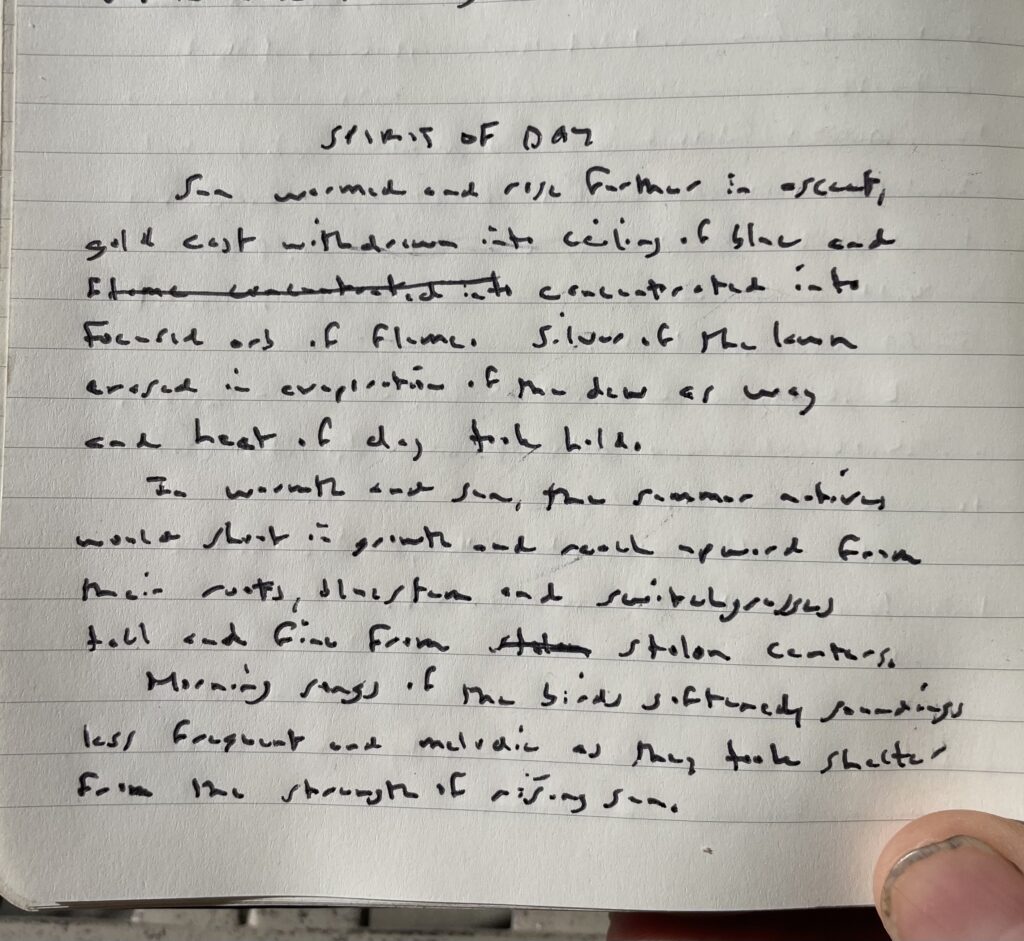 SPIRIT OF DAY
Sun warmed and rise further in ascent,
gold cast withdrawn into ceiling of blue and
flame concentrated into concentrated into
focused orb of flame. Silver of the lawn
erased in evaporation of the dew as way
and heat of day took hold.
In warmth and sun, the summer natives
would shoot in growth and reach upward from
their roots, bluestem and switchgrasses
tall and fine from stolon stolon centers.
Morning songs of the birds softened, soundings
less frequent and melodic as they took shelter
from the strength of rising sun.